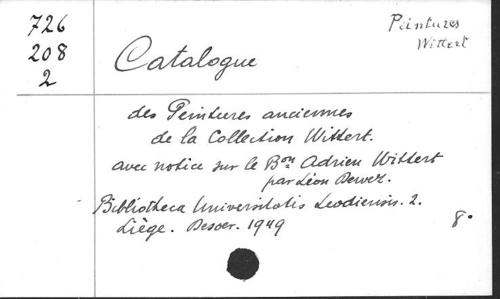 726
208
2
Peintures
Wittert
Catalogue
des Peintures anciennes
de la Collection Wittert.
avec notice sur le Bon Adrien Wittert
par Léon Dewez.
Bibliotheca Universitatis Leodiensis. 2.
Liège. Desoer. 1949
8°